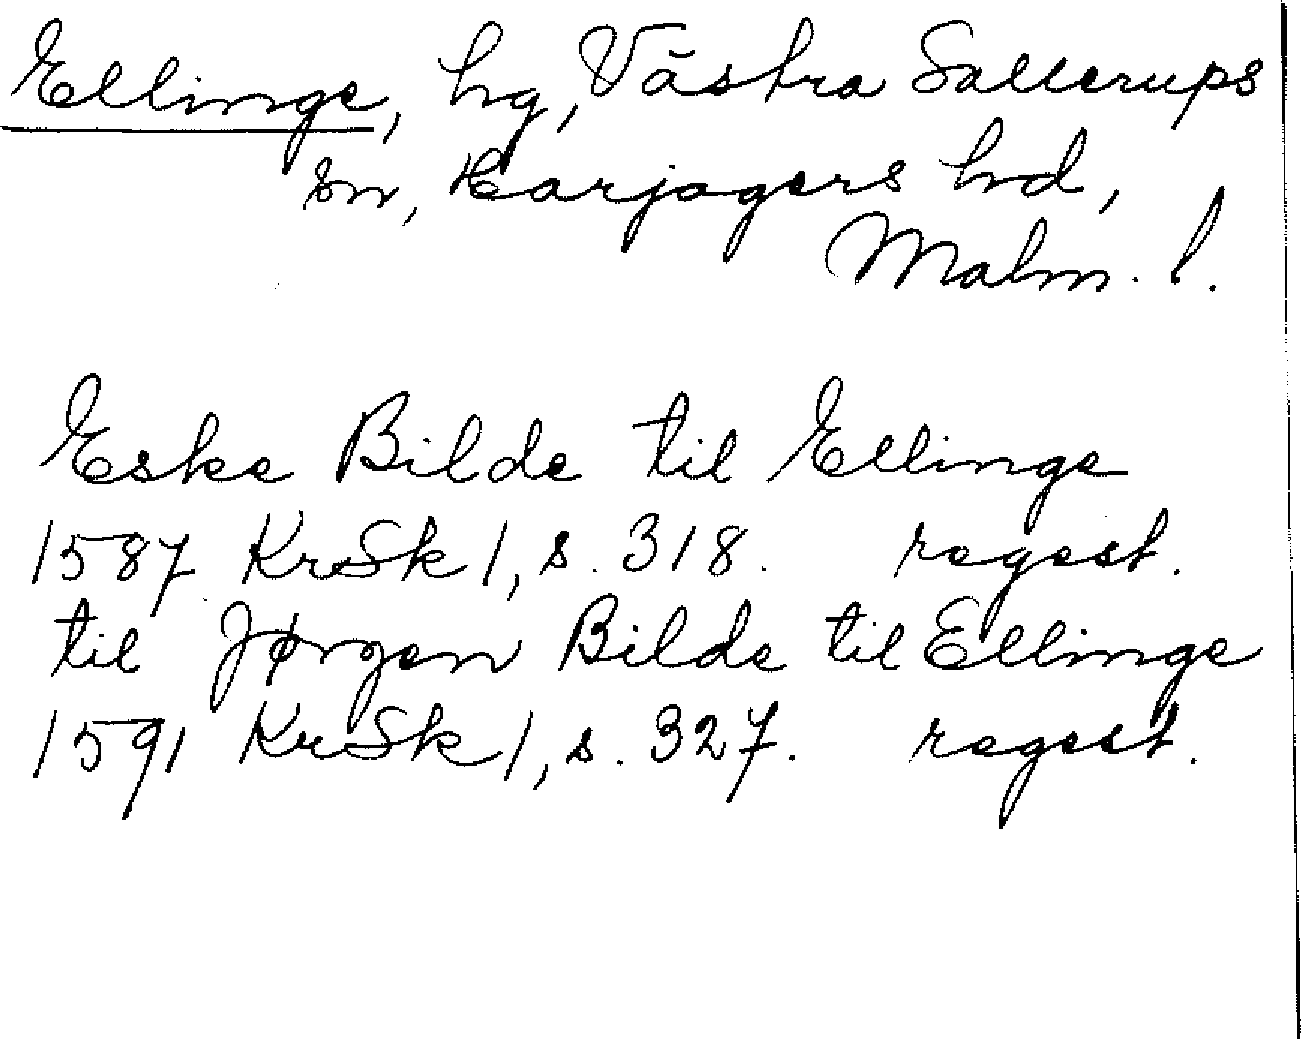 Ellinge, hg, Västra Sallerups
sn, Harjagers hd,
Malm. l.
Eske Bilde til Ellinge
1587 KrSk 1, s. 318. regest.
til Jørgen Bilde til Ellinge
1591 KrSk 1, s. 327. regest.